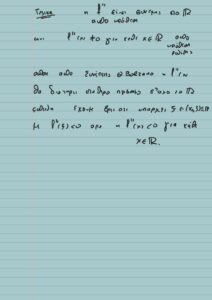 η f'' είναι συνεχής στο ℝ
από υπόθεση
και f''(x) ≠ 0 για κάθε x ∈ ℝ από
υπόθεση
άρα από συνέπειες Θ Bolzano η f''(x)
θα διατηρεί σταθερό πρόσημο στο ℝ
έχουμε βρει ότι υπάρχει ξ ∈
με f''(ξ) < 0 άρα και f''(x) < 0 για κάθε
x ∈ ℝ.